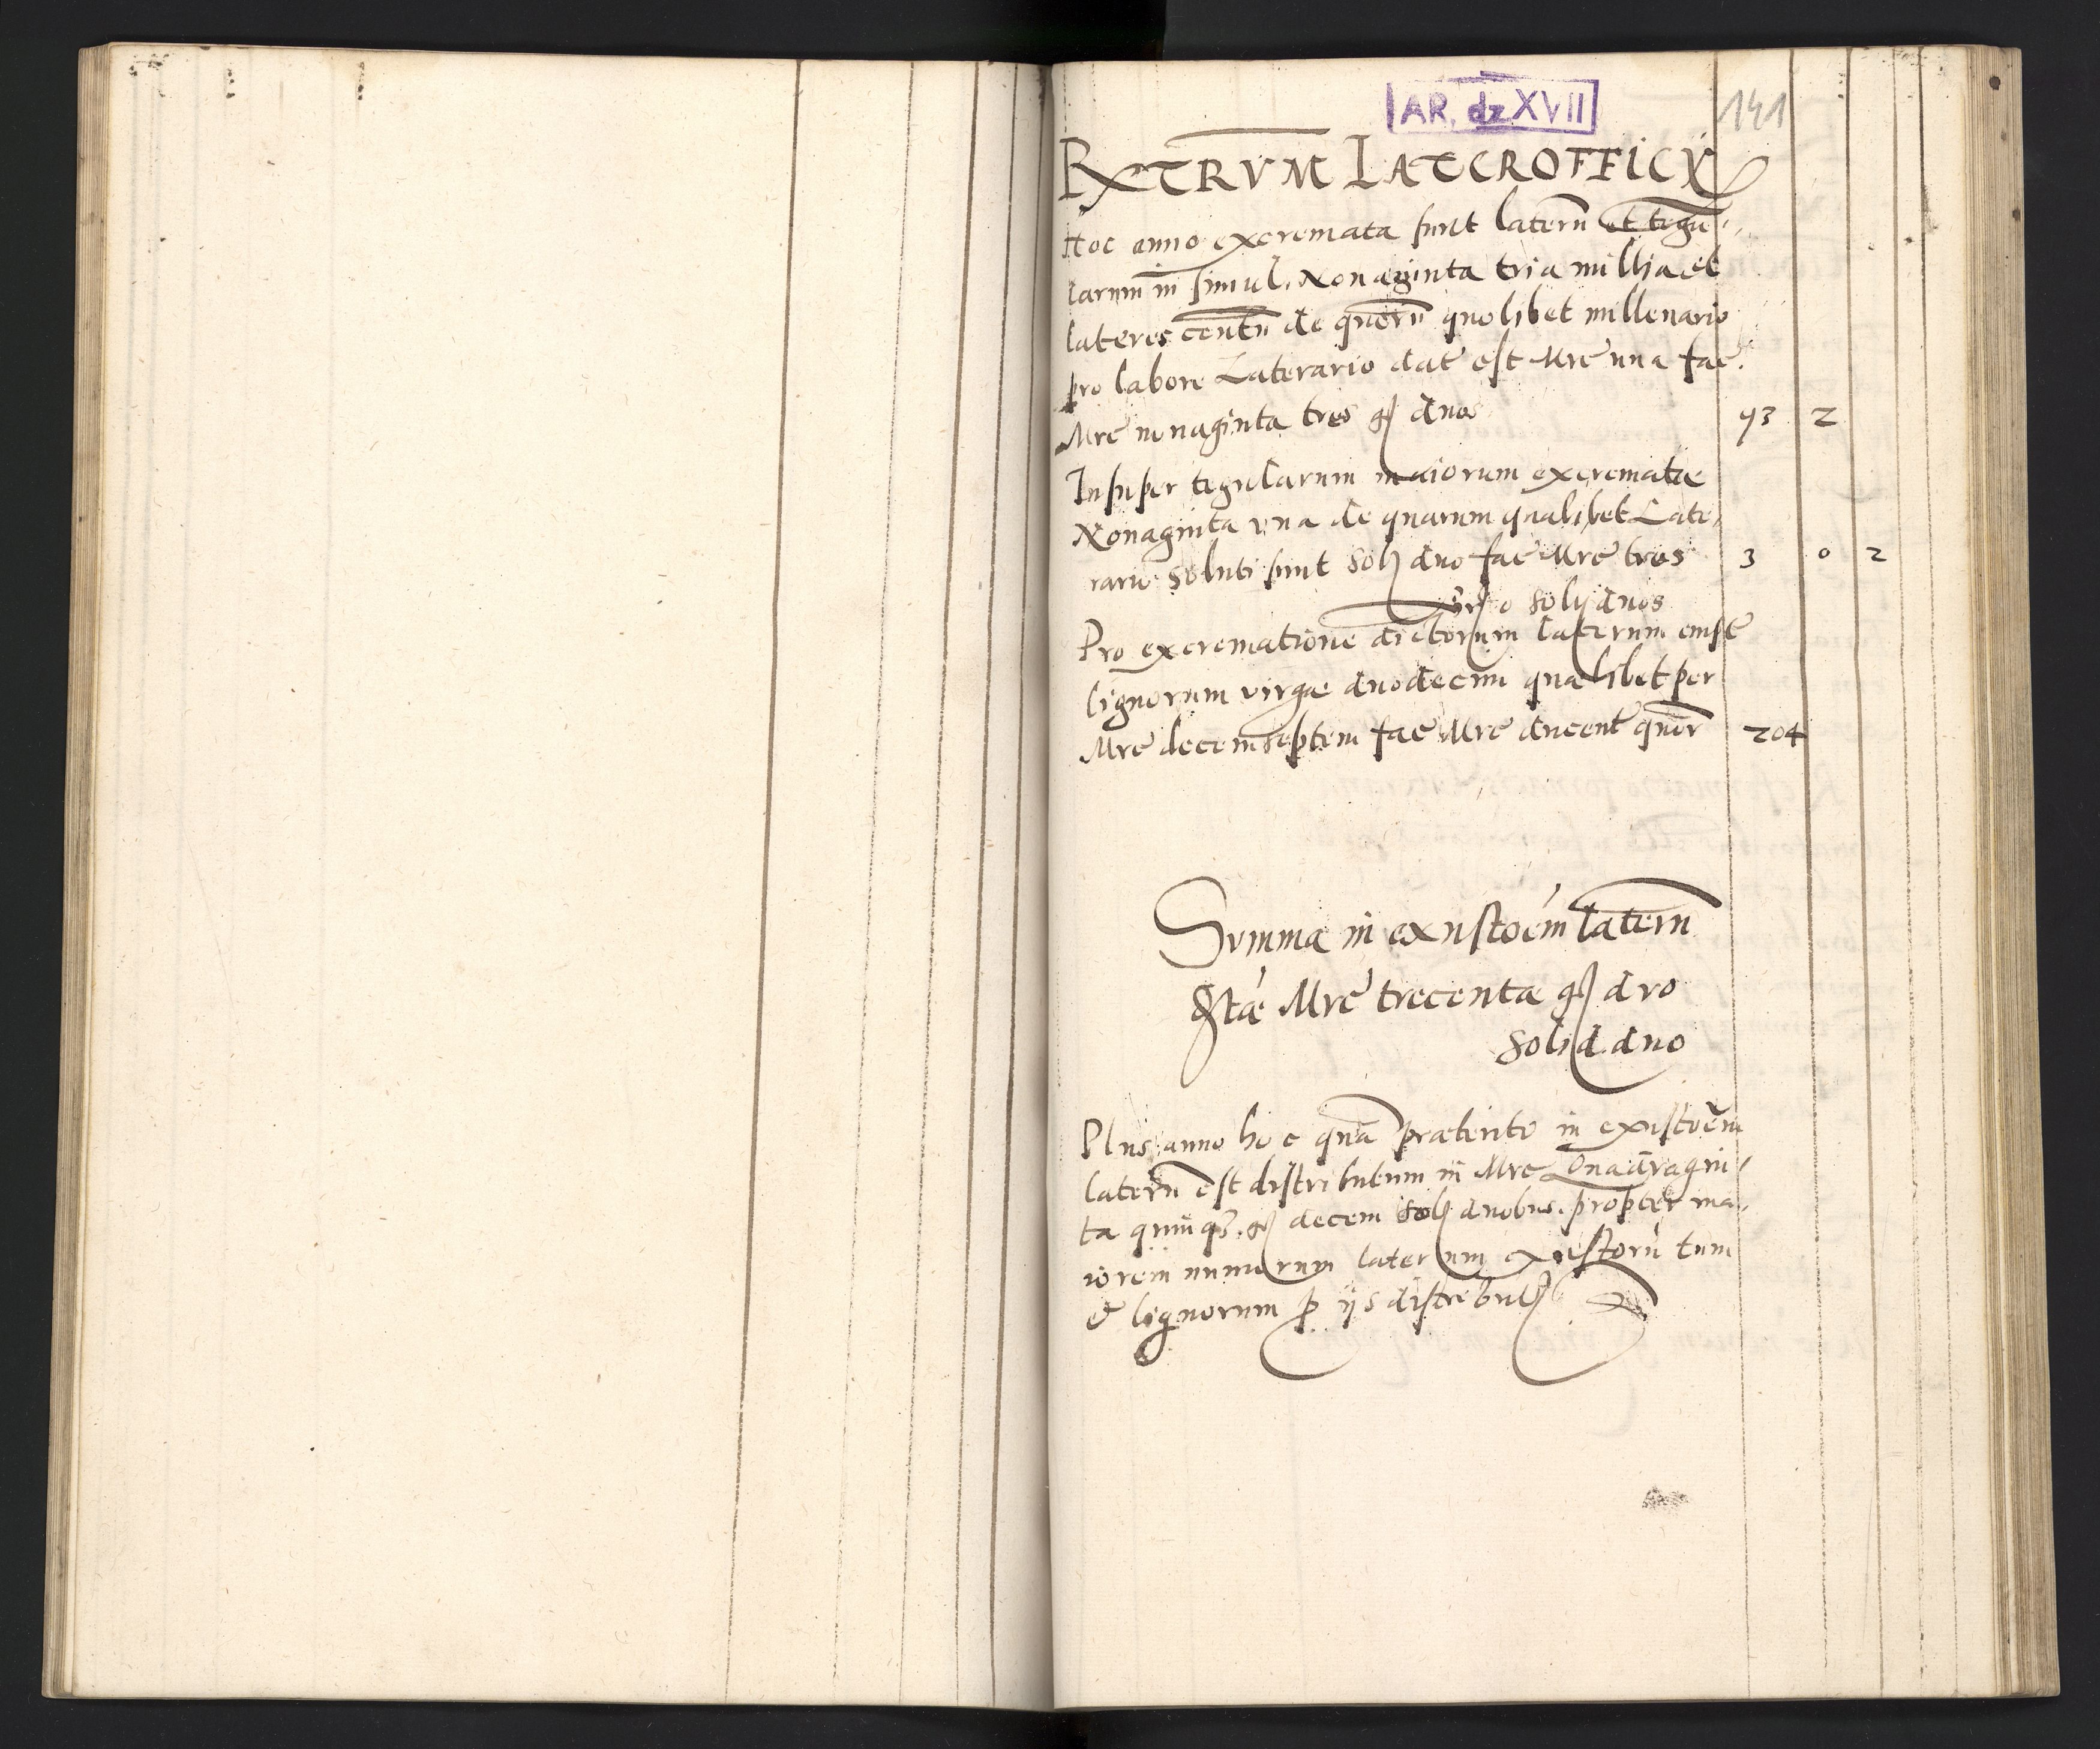 AR. dz XVII
141
EXTRVM LATEROFFICII
Hoc anno excremata sunt laterũ et tegu„
larum in̄ simul. Nonaginta tria millia et
lateres centũ de querũ quolibet millenario
pro labore Laterario dat est Mrē una fac̄
Mrē nonaginta tres gs duos 93 2
Insuper tegularum maiorum excrematæ
Nonaginta vna de quarum qualibet Late,
rario soluti sunt sol duo fac̄ Mrē tres 3 0 2
grs 0 soly duos
Pro excrematione dictorum laterum empt̄
lignorum virgæ duodecim quælibet per
Mrē decemseptem fac̄ Mrē ducent̄ quer 204
Svmma in exustoēm laterũ
Mrē trecentæ gs dvo
solid. duo
Plus anno hoc quā præterito in exustoēm
laterũ est distributum in̄ Mrē Quadragin,
ta quinqȝ. gs decem sol duobus. propter ma,
iorem numerum laterum exustorũ tum
& lignorum p ijs distribut